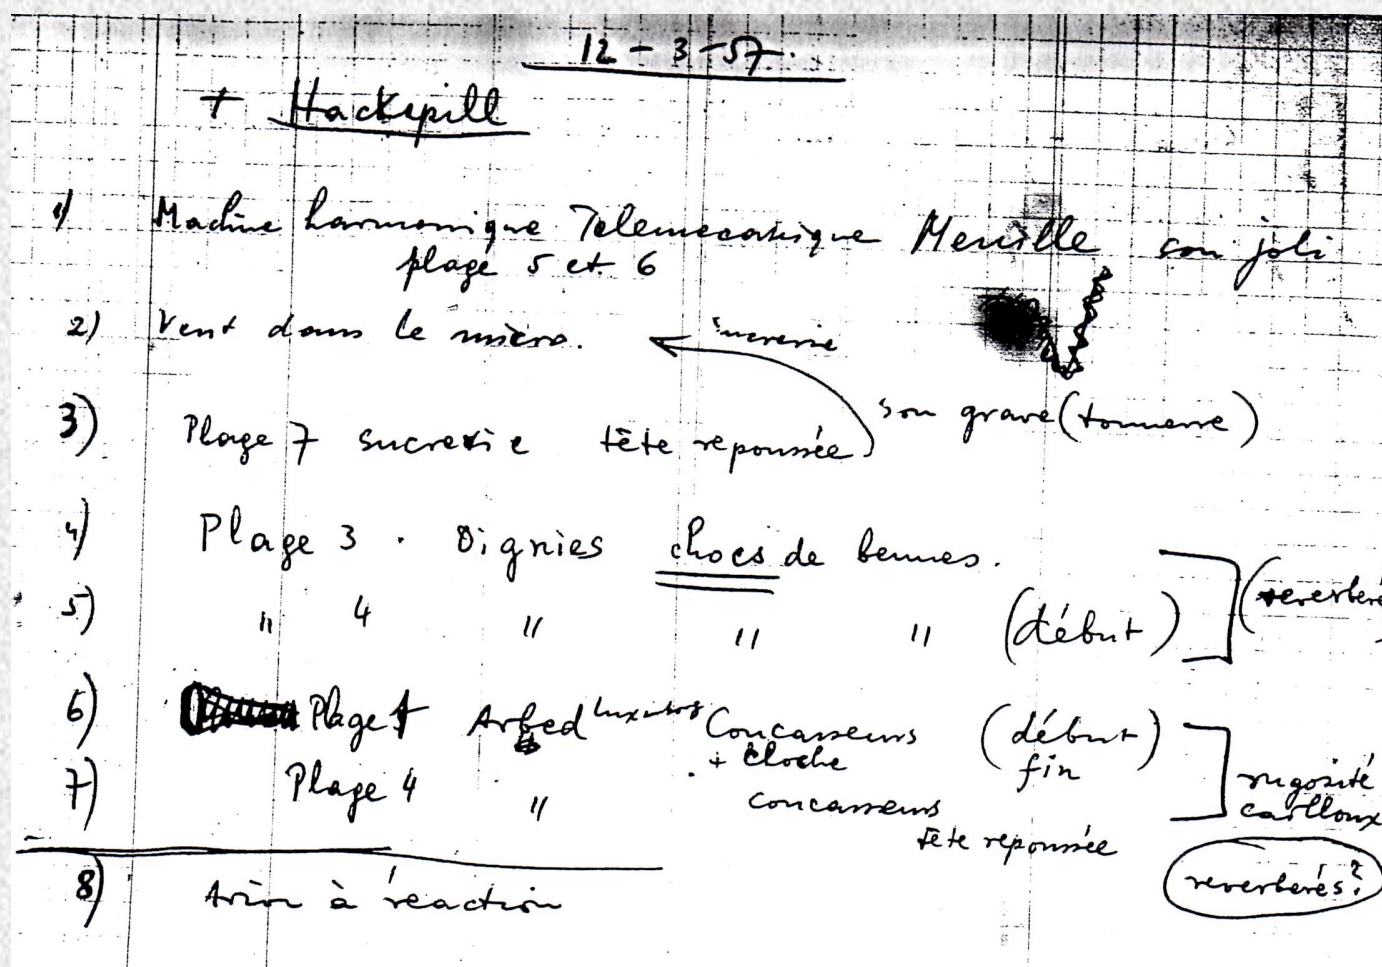 12-3-57.
+ Hackspill
1) Machine harmonique Telemecanique Merville son joli
plage 5 et 6
2) Vent dans le micro.
sucrerie
3) Plage 7 sucrerie tête repoussée son grave (tonnerre)
4) Plage 3 . Oignies chocs de bennes.
5) " 4 " " " (début)
6) Plage 1 Arbed Concasseurs (début)
+ cloche fin
7) Plage 4 " concasseurs
tête repoussée
rugosité
cailloux
reverberés?
8) Avion à réaction